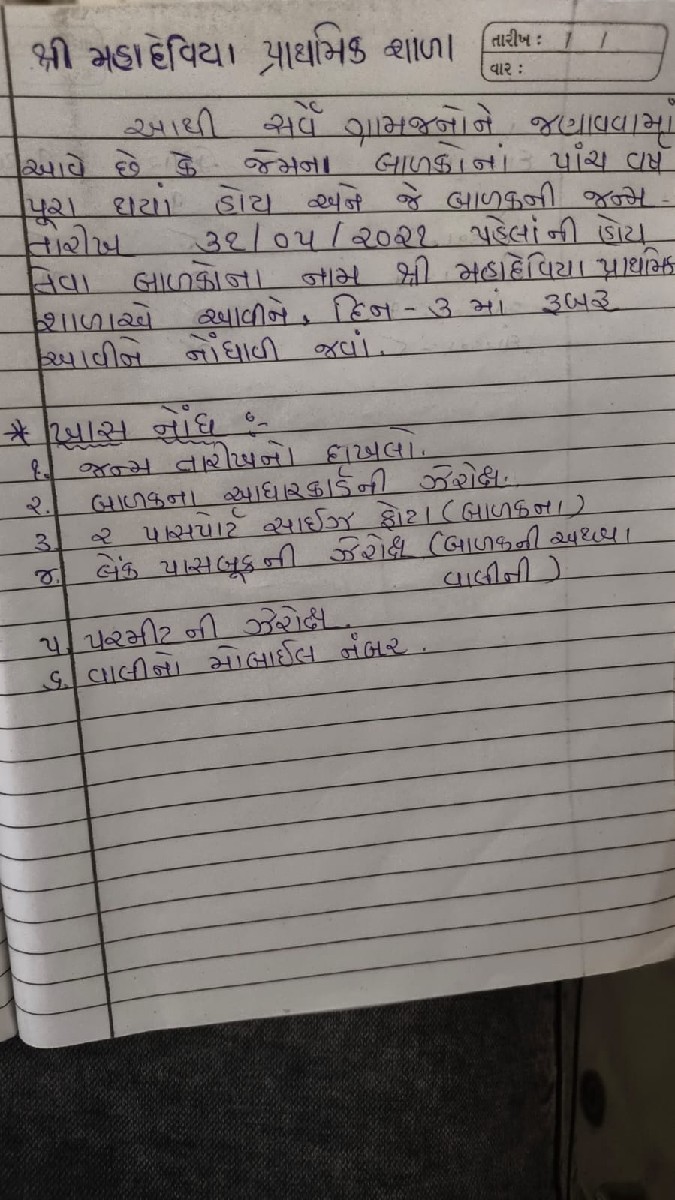 શ્રી મહાદેવિયા પ્રાથમિક શાળા
તારીખ : / /
વાર :
આથી સર્વે ગ્રામજનોને જણાવવામાં
આવે છે કે જેમના બાળકોનાં પાંચ વર્ષ
પૂરા થયાં હોય અને જે બાળકની જન્મ -
તારીખ ૩૧/૦૫/૨૦૨૧ પહેલાંની હોય
તેવા બાળકોના નામ શ્રી મહાદેવિયા પ્રાથમિક
શાળાએ આવીને, દિન - ૩ માં રૂબરૂ
આવીને નોંધાવી જવાં.
* ખાસ નોંધ :-
૧. જન્મ તારીખનો દાખલો.
૨. બાળકના આધારકાર્ડની ઝેરોક્ષ.
૩. ૨ પાસપોર્ટ સાઈઝ ફોટા (બાળકના)
૪. બેંક પાસબૂકની ઝેરોક્ષ (બાળકની અથવા
વાલીની)
૫. પરમીટ ની ઝેરોક્ષ.
૬. વાલીનો મોબાઈલ નંબર.